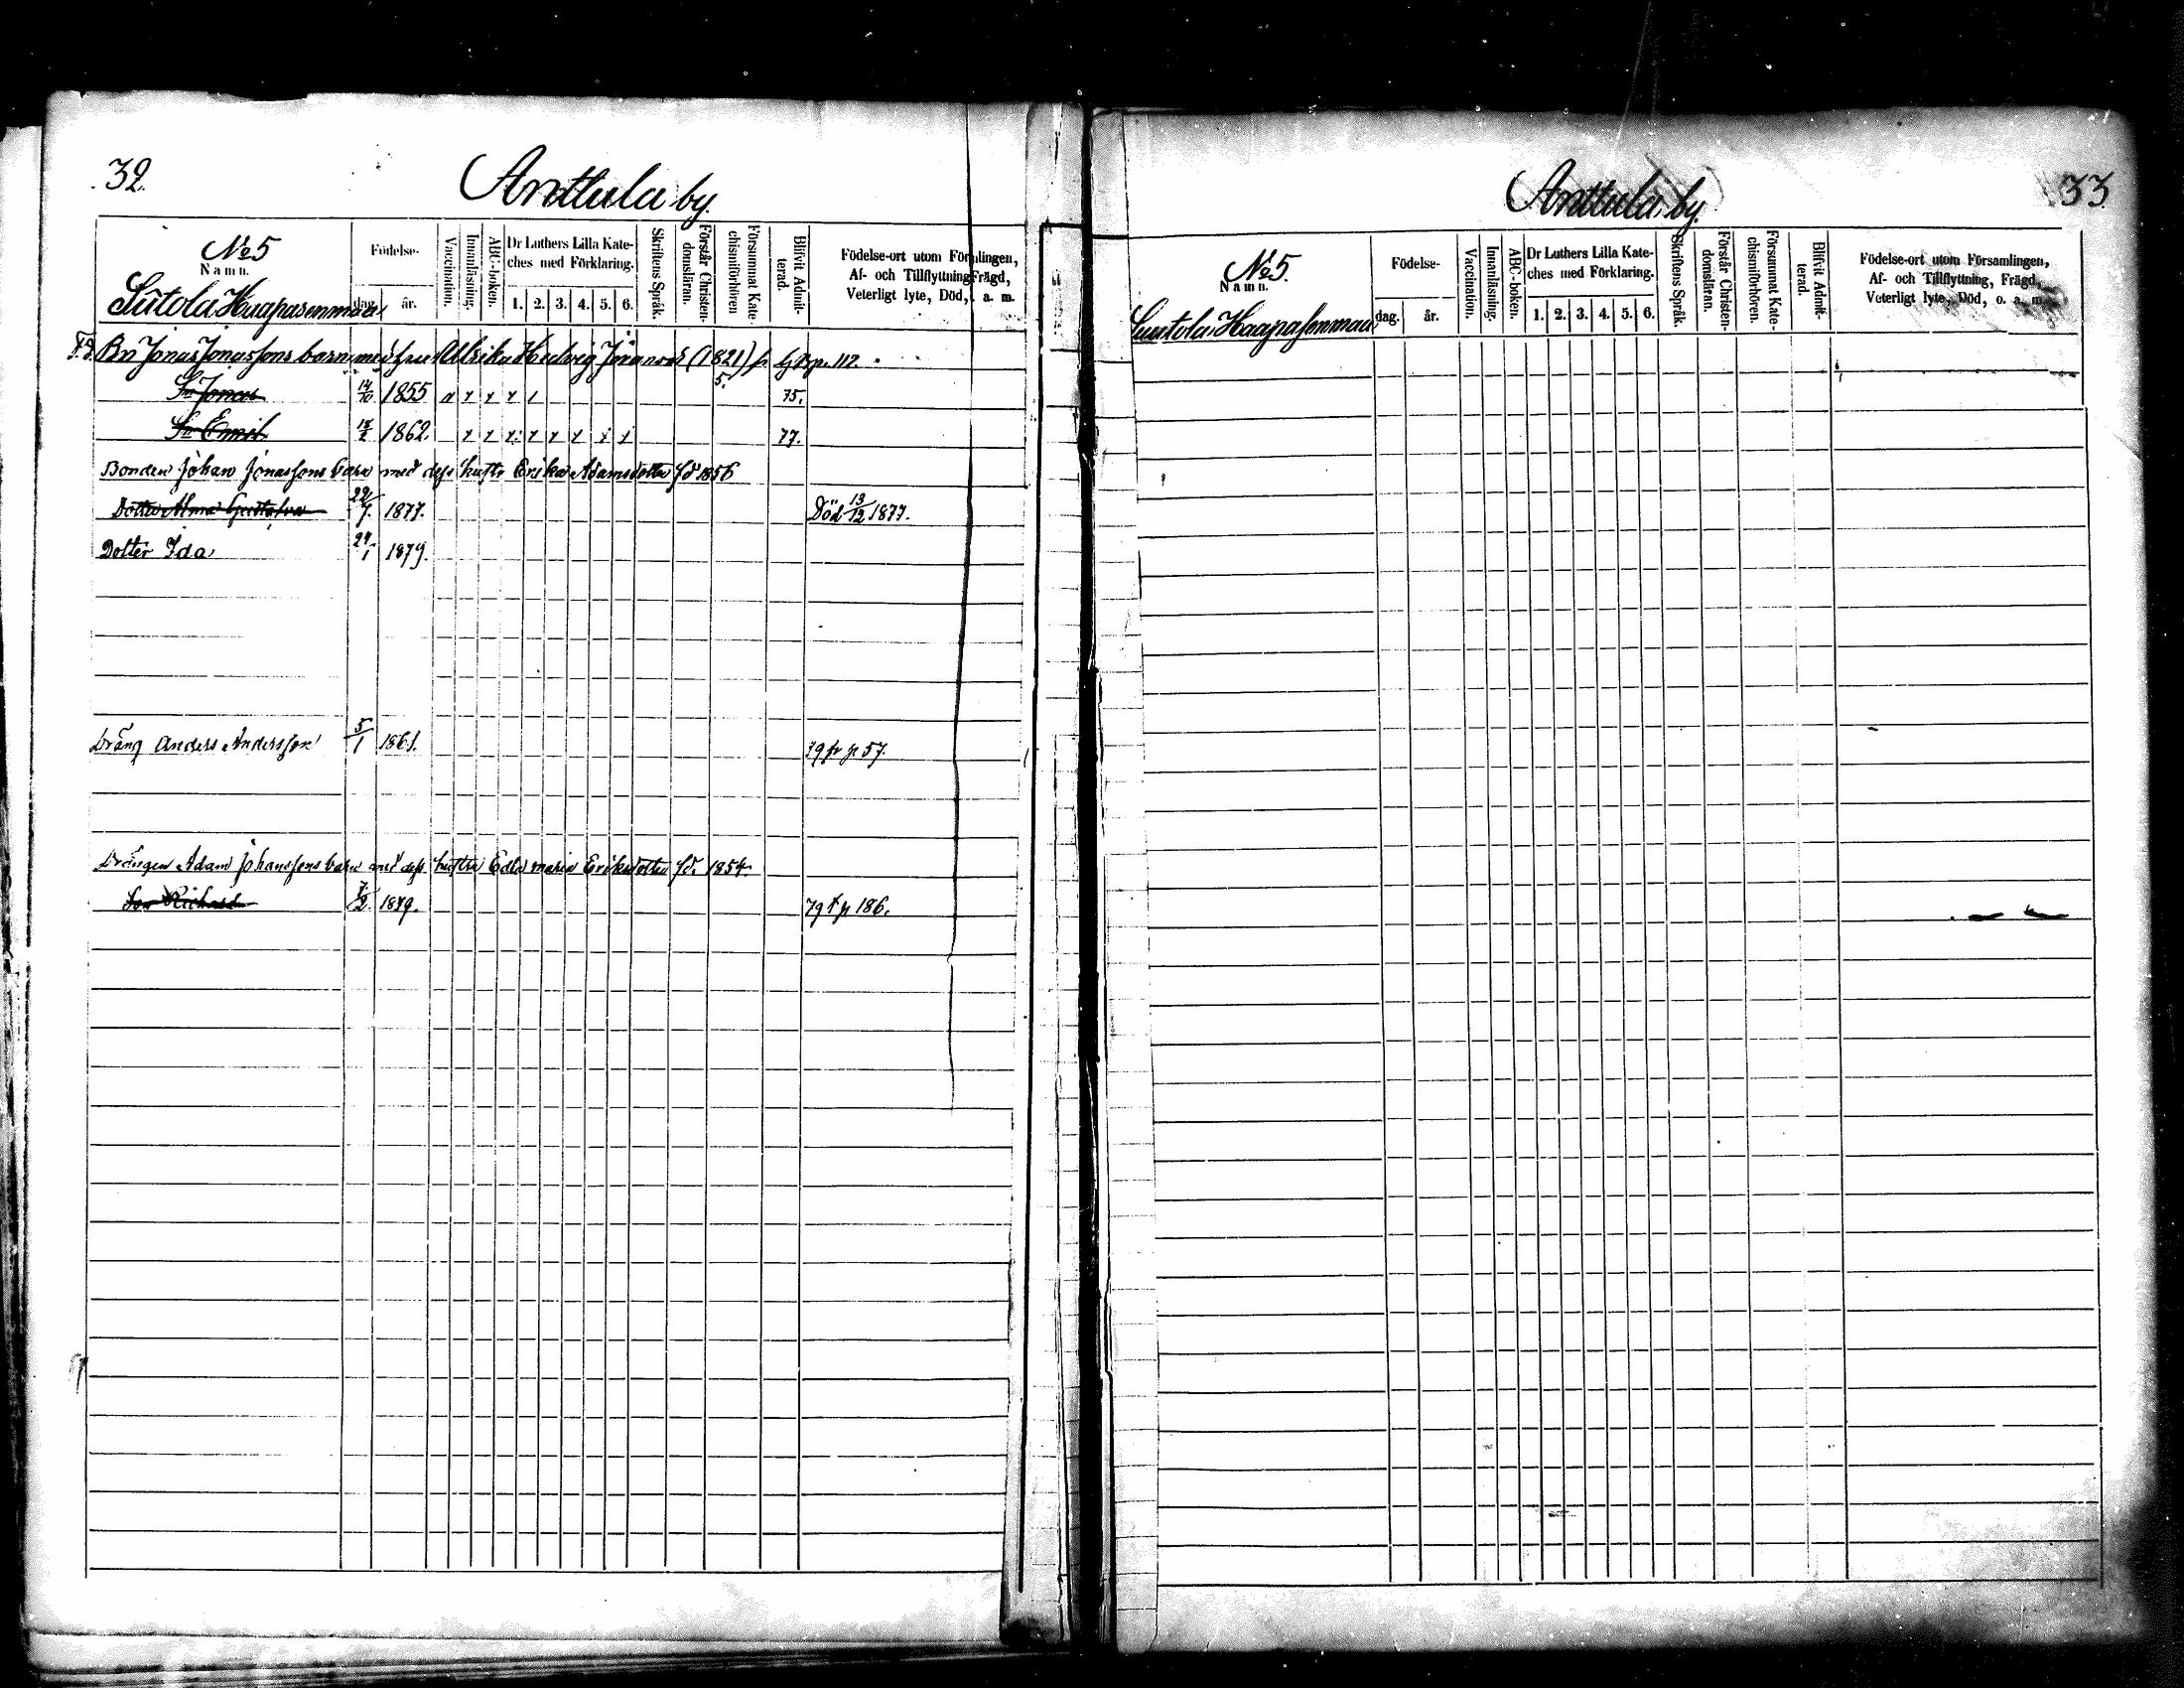 32.
Anttula by.
No 5
Namn.
Födelse-
dag.
år.
Vaccination.
Innanläsning.
ABC-boken.
Dr Luthers Lilla Kate-
ches med Förklaring.
1. 2. 3. 4. 5. 6.
Skriftens Språk.
Förstår Christen-
domsläran.
Försummat Kate-
chismiförhören
Blifvit Admit-
terad.
Födelse-ort utom Församlingen,
Af- och Tillflyttning, Frägd,
Veterligt lyte, Död, o. a. m.
Haapasenmaa
Bn Jonas Jonassons barn med hu Ulrika Hedvig (1821) p. 117.
Sn Jonas 14/10 1855 5. 75.
Sn Emil 1862. 77.
Bonden Johan Jonassons barn med dess hustr Erika Adamsdotter fd 1856
Dotter Alma Gustafva 29/7. 1877. Död 13/12 1877.
Dotter Ida 24/1 1879.
Dräng Anders Andersson 5/1 1861. 79 fr p 57.
Drängen Adam Johanssons barn med dess hustru Edla Maria Eriksdotter fd. 1854.
Son Richard 7/2. 1879. 79 t p 186.
33.
Anttula by.
No 5.
Namn.
Födelse-
dag.
år.
Vaccination.
Innanläsning.
ABC-boken.
Dr Luthers Lilla Kate-
ches med Förklaring.
1. 2. 3. 4. 5. 6.
Skriftens Språk.
Förstår Christen-
domsläran.
Försummat Kate-
chismiförhören.
Blifvit Admit-
terad.
Födelse-ort utom Församlingen,
Af- och Tillflyttning, Frägd,
Veterligt lyte, Död, o. a. m.
Haapasenmaa